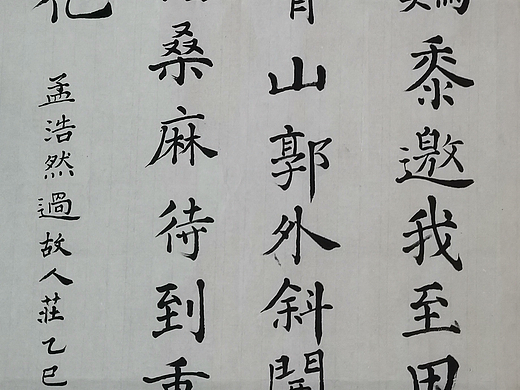 黍邀我至田
青山郭外斜開
桑麻待到重
花
孟浩然過故人莊乙巳